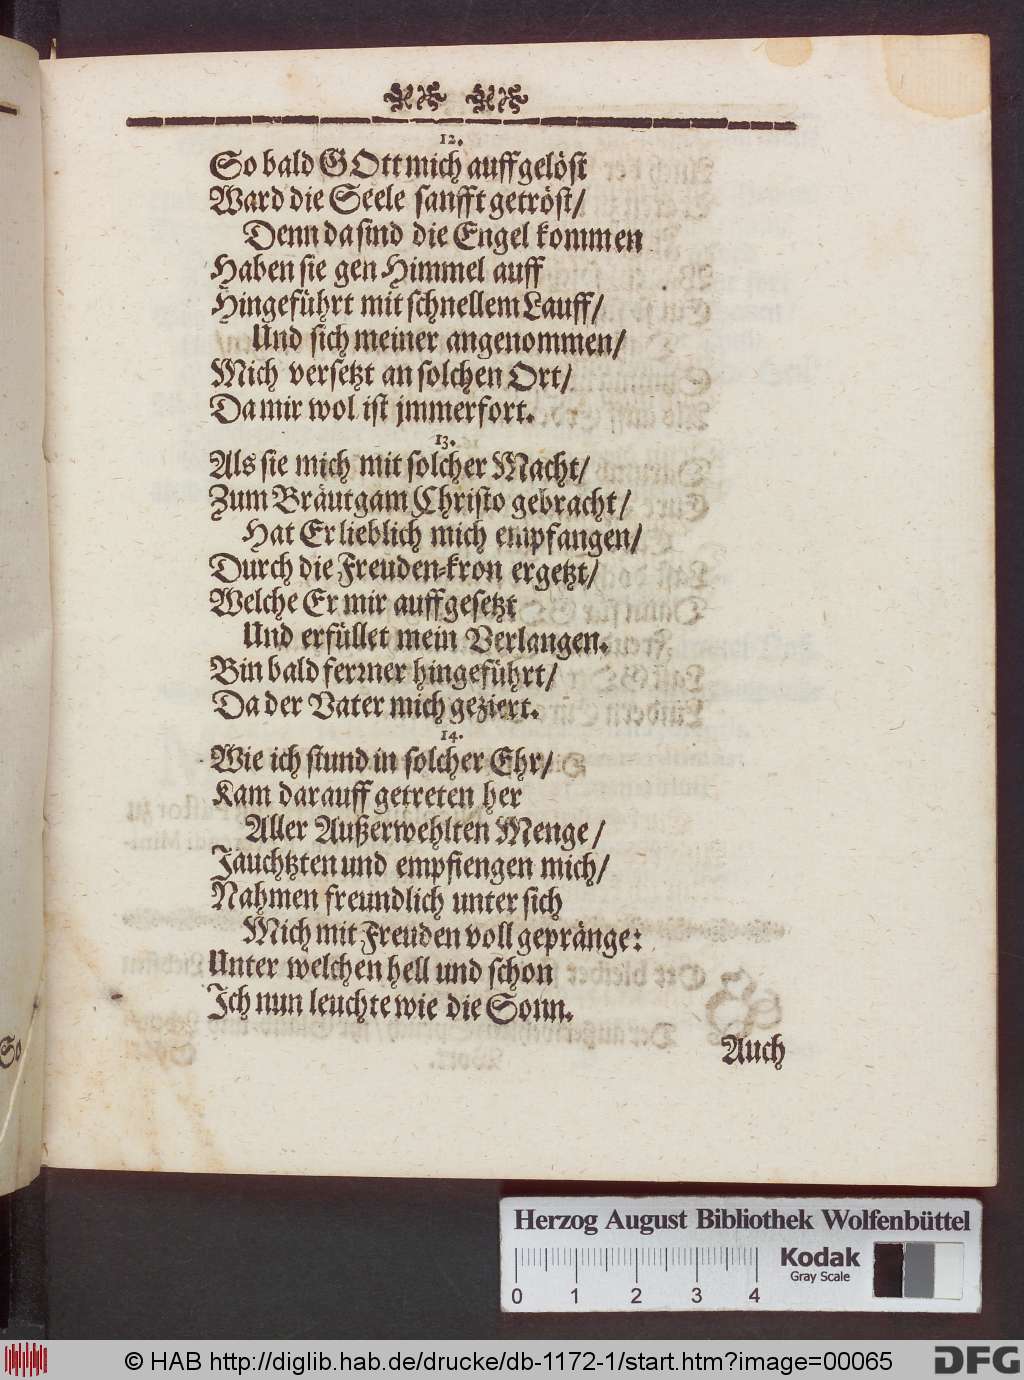 12.
So bald GOtt mich auffgelöst
Ward die Seele sanfft getröst/
Denn da sind die Engel kommen
Haben sie gen Himmel auff
Hingeführt mit schnellem Lauff/
Und sich meiner angenommen/
Mich versetzt an solchen Ort/
Da mir wol ist jmmerfort.
13.
Als sie mich mit solcher Macht/
Zum Bräutgam Christo gebracht/
Hat Er lieblich mich empfangen/
Durch die Freuden-kron ergetzt/
Welche Er mir auffgesetzt
Und erfüllet mein Verlangen.
Bin bald ferrner hingeführt/
Da der Vater mich geziert.
14.
Wie ich stund in solcher Ehr/
Kam darauff getreten her
Aller Außerwehlten Menge/
Jauchtzten und empfiengen mich/
Nahmen freundlich unter sich
Mich mit Freuden voll gepränge:
Unter welchen hell und schon
Ich nun leuchte wie die Sonn.
Auch
So
Herzog August Bibliothek Wolfenbüttel
Kodak
Gray Scale
0 1 2 3 4
© HAB http://diglib.hab.de/drucke/db-1172-1/start.htm?image=00065
DFG